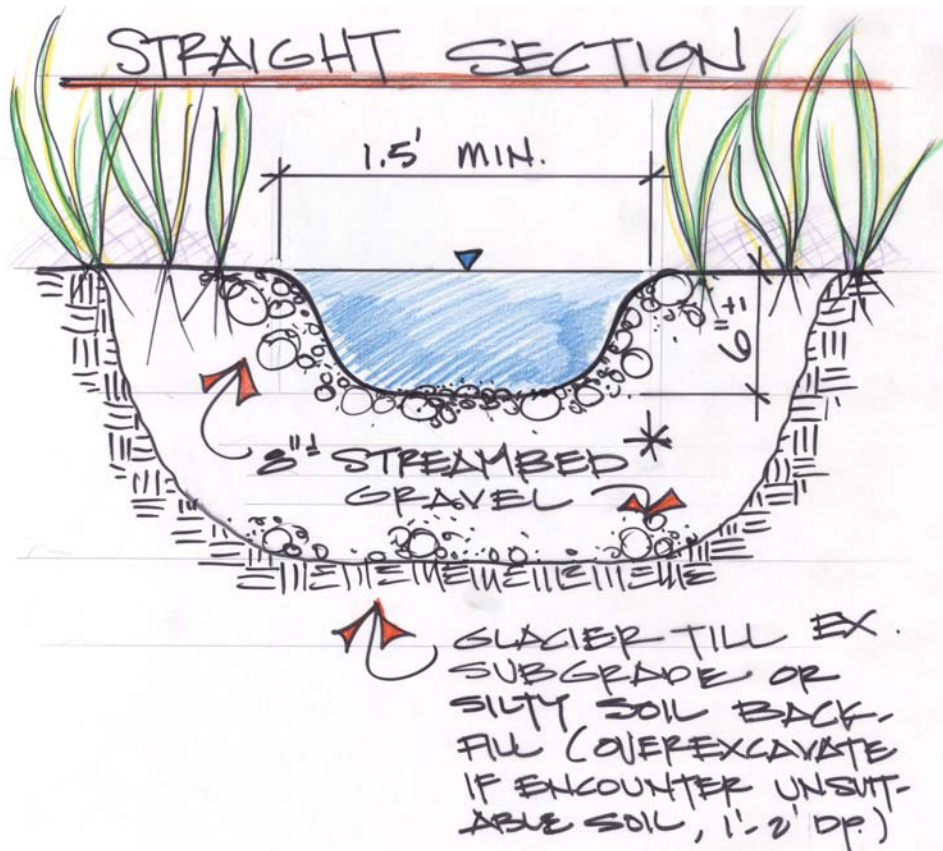 STRAIGHT SECTION
1.5' MIN.
6"±
8"± STREAMBED *
GRAVEL
GLACIER TILL EX.
SUBGRADE OR
SILTY SOIL BACK-
FILL (OVEREXCAVATE
IF ENCOUNTER UNSUIT-
ABLE SOIL, 1'-2' DP.)